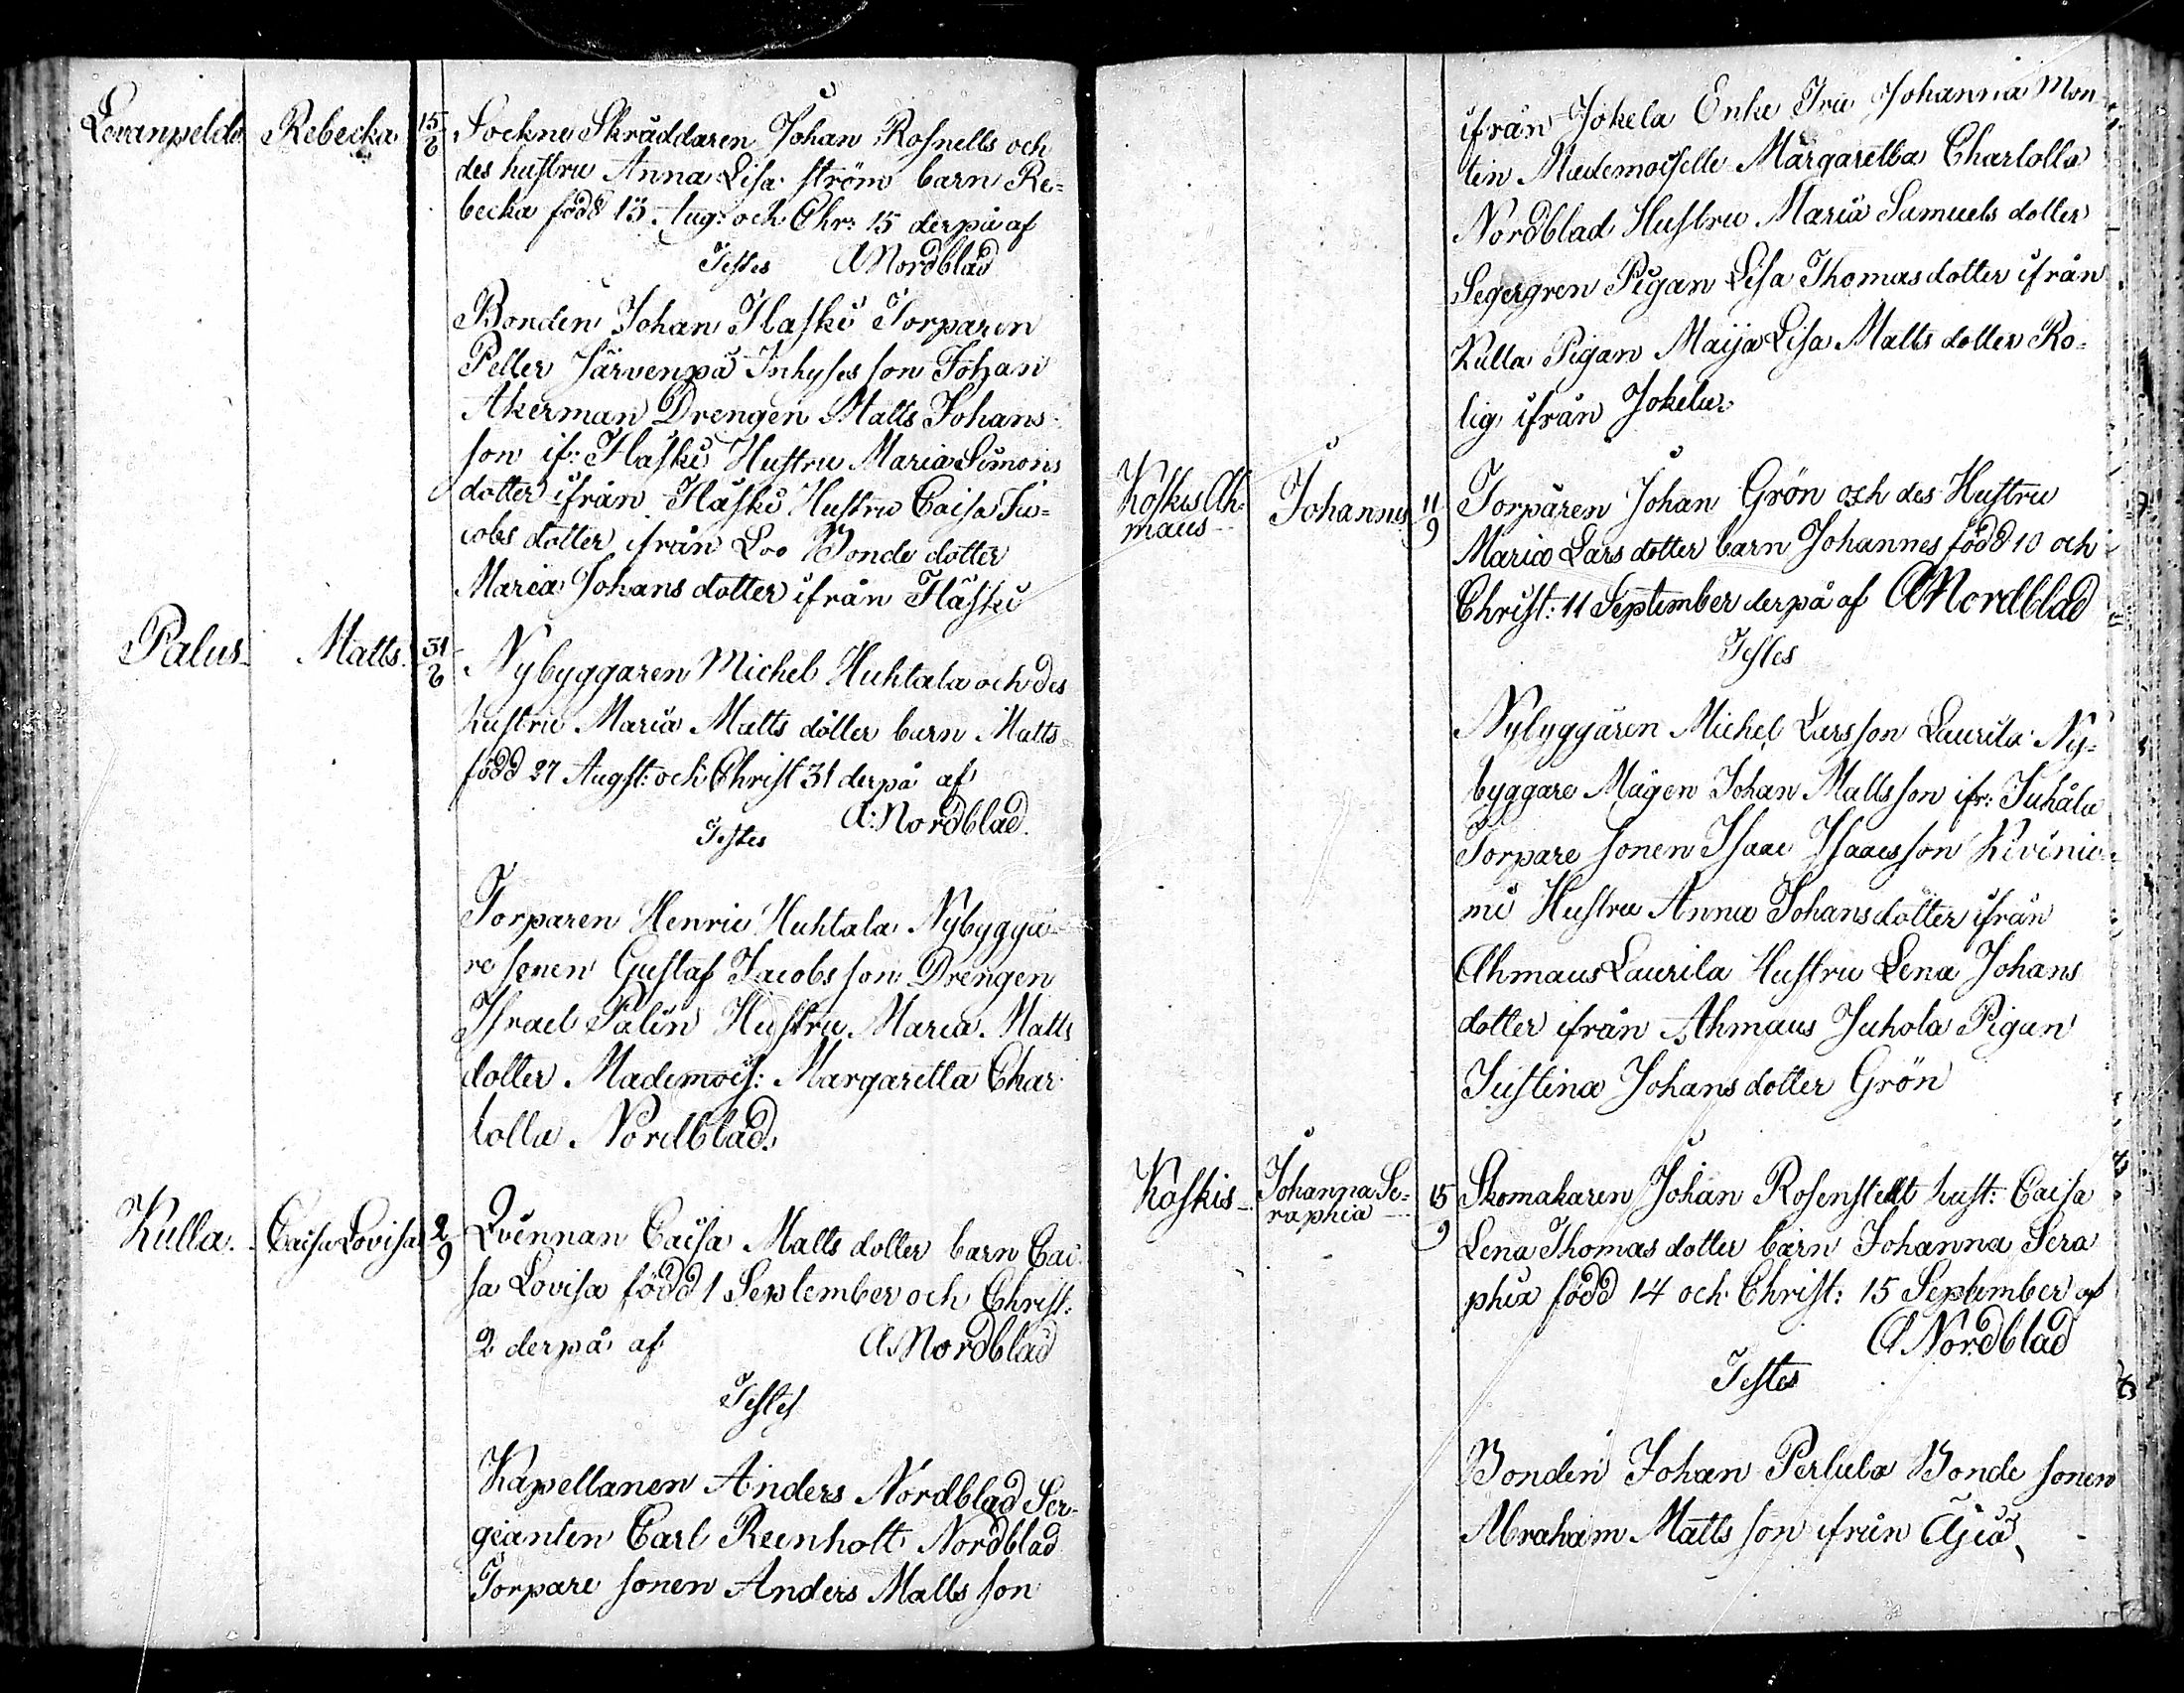 Levanpeldo Rebecka 15/8 Sockne Skräddaren Johan Rosnells och
des hustru Anna Lisa ström barn Re=
becka född 13 Aug: och Chr: 15 derpå af
Testes ANordblad
Bonden Johan Flaski Torparen
Petter Järvenpä Inhyses son Johan
Akerman Drengen Matts Johans
son if: Flaski Hustru Maria Simons
dotter ifrån Flaski Hustru Caisa Ja=
cobs dotter ifrån Loo Bonde dotter
Maria Johans dotter ifrån Flaski
Palus Matts 31/8 Nybyggaren Michel Huhtala och des
hustru Maria Matts dotter barn Matts
född 27 Augst: och Christ 31 derpå af
A: Nordblad
Testes
Torparen Henric Huhtala Nybygga
re sonen Gustaf Jacobs son Drengen
Israel Palin Hustru Maria Matts
dotter Mademois: Margaretta Char
lotta Nordblad.
Kulla Caisa Lovisa 2/9 Qvinnan Caisa Matts dotter barn Cai
sa Lovisa född 1 September och Christ:
2 derpå af ANordblad
Testes
Kapellanen Anders Nordblad Ser-
gianten Carl Reenholt Nordblad
Torpare sonen Anders Matts son
ifrån Jokela Enke Fru Johanna Mon
tin Mademoiselle Margaretta Charlotta
Nordblad Hustru Maria Samuels dotter
Segergren Pigan Lisa Thomas dotter ifrån
Kulla Pigan Maija Lisa Matts dotter Ro=
lig ifrån Jokela
Koskis Ah=
maus Johannes 11/9 Torparen Johan Grön och des Hustru
Maria Lars dotter barn Johannes född 10 och
Christ: 11 September derpå af ANordblad
Testes
Nybyggaren Michel Larsson Laurila Ny=
byggare Mågen Johan Mattsson ifr: Juhala
Torpare sonen Isaac Isaacsson Kivinie
mi Hustru Anna Johans dotter ifrån
Ahmaus Laurila Hustru Lena Johans
dotter ifrån Ahmaus Juhola Pigan
Justina Johans dotter Grön
Koskis Johanna Se=
raphia 15/9 Skomakaren Johan Rosenstedt hust: Caisa
Lena Thomas dotter barn Johanna Sera
phia född 14 och Christ: 15 September af
ANordblad
Testes
Bonden Johan Perlula Bonde sonen
Abraham Matts son ifrån